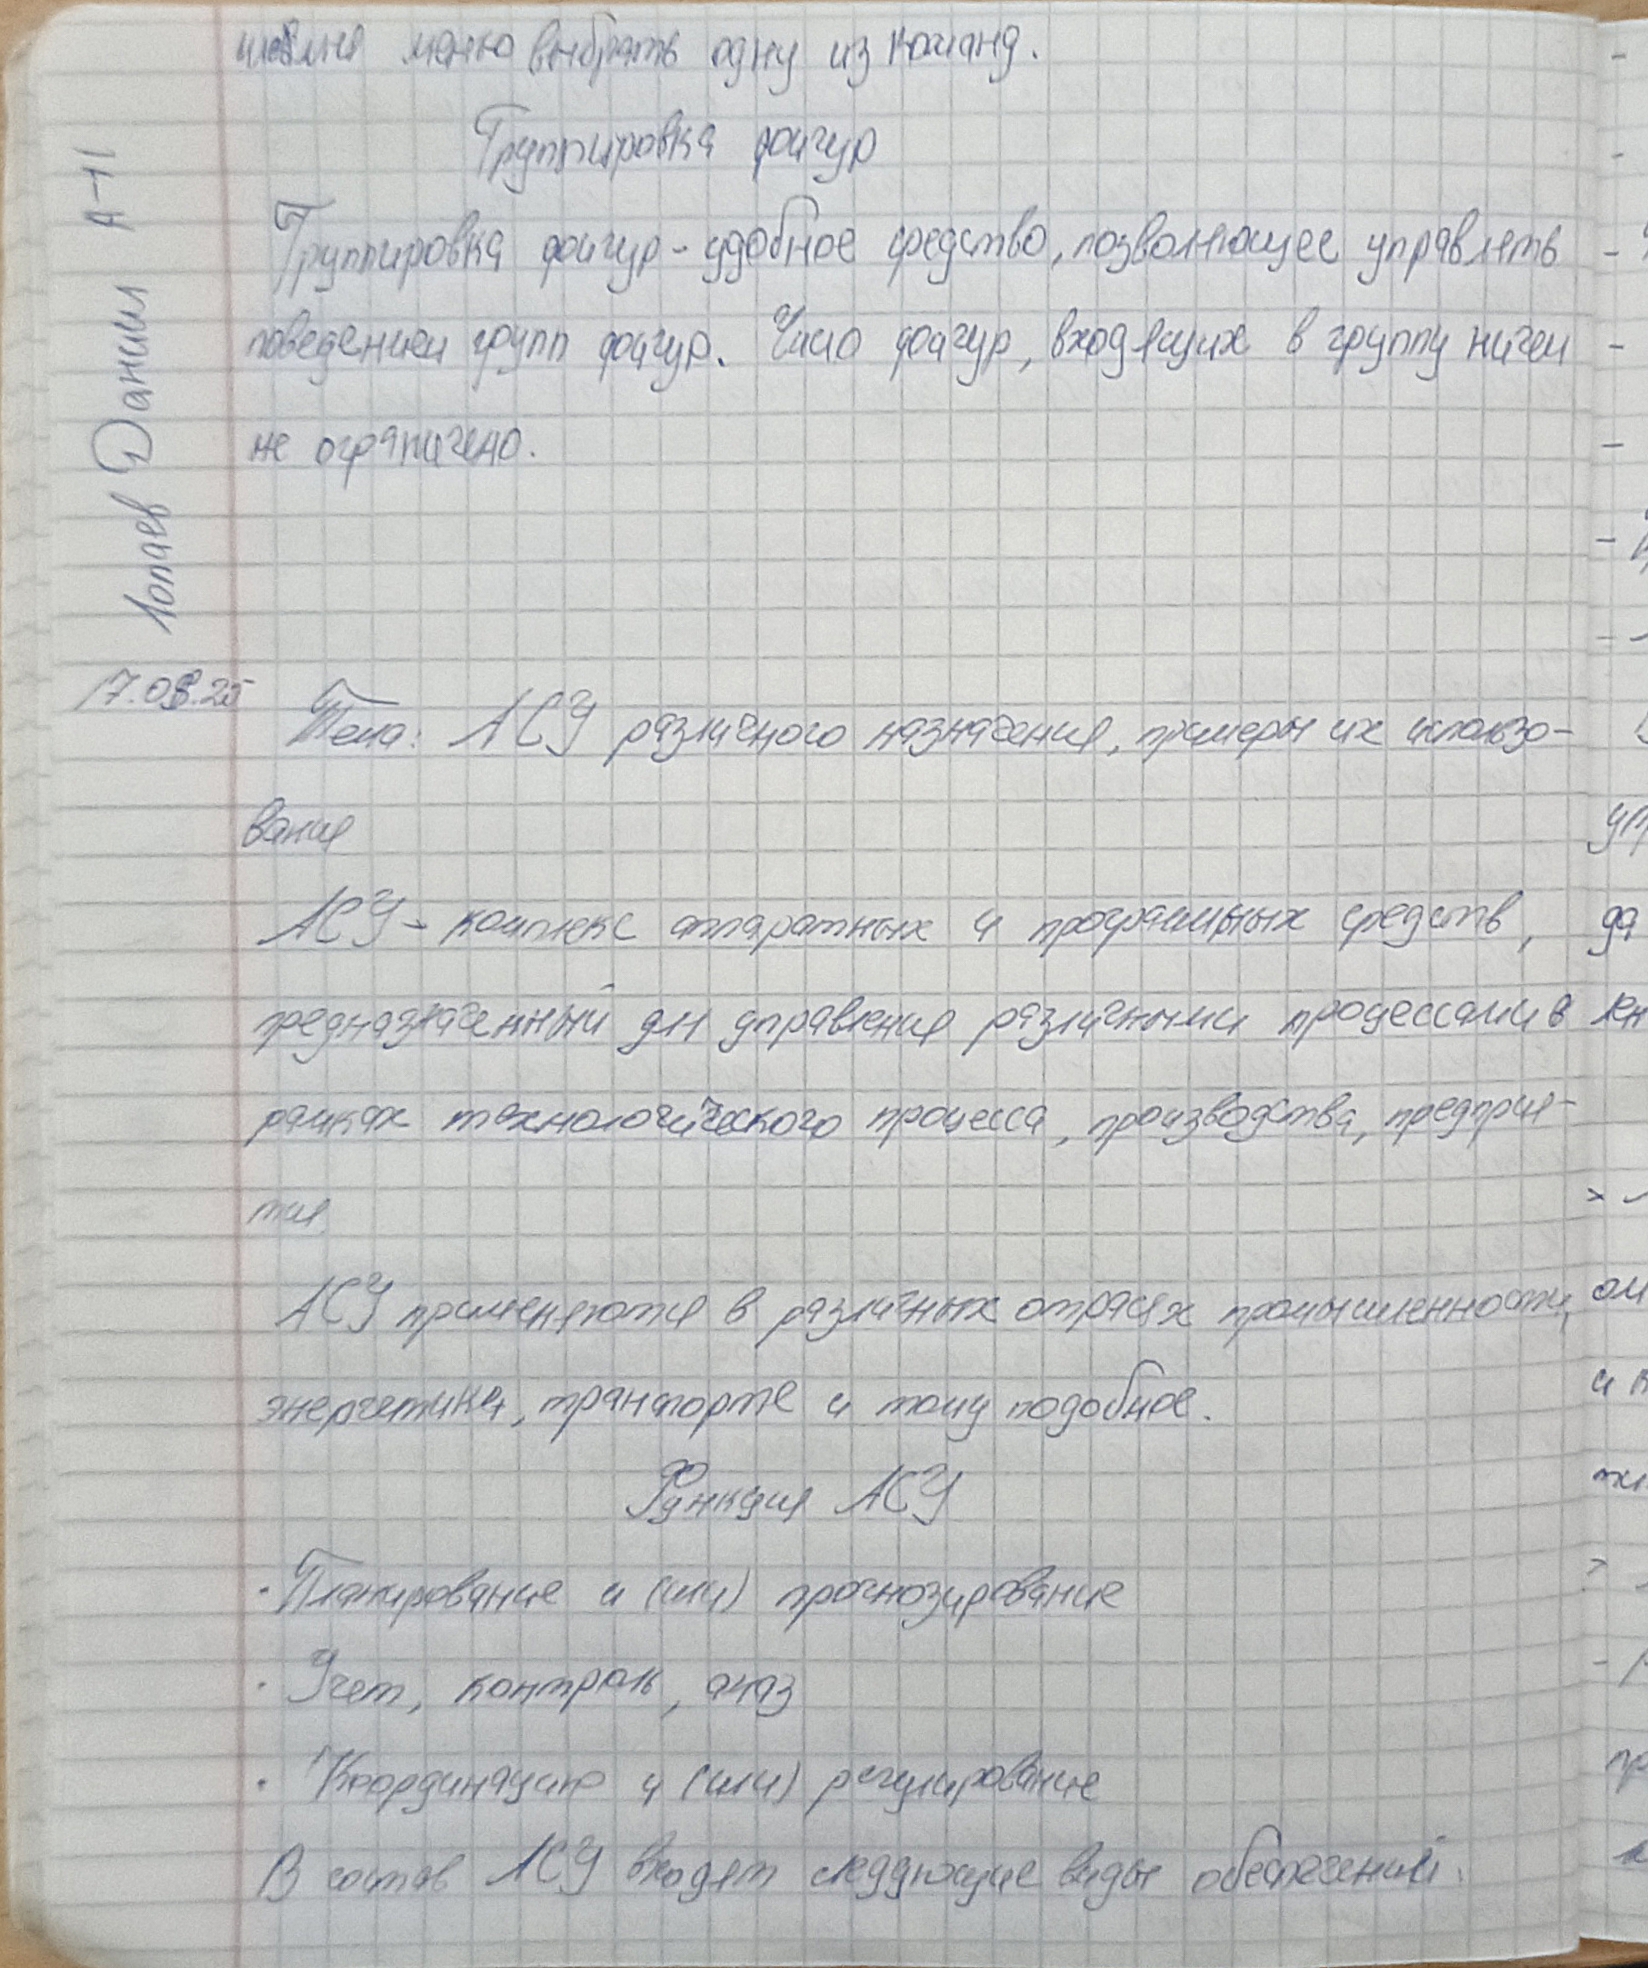 меню выбрать одну из команд.
Группировка фигур
Группировка фигур - удобное средство, позволяющее управлять
поведением групп фигур. Число фигур, входящих в группу ничем
не ограничено.
Лопаев Даниил А-11
17.09.25
Тема: АСУ различного назначения, примеры их использо-
вания
АСУ - комплекс аппаратных и программных средств,
предназначенный для управления различными процессами в
рамках технологического процесса, производства, предприя-
тия
АСУ применяются в различных отраслях промышленности,
энергетика, транспорте и тому подобное.
Функция АСУ
· Планирование и (или) прогнозирование
· Учет, контроль, аназ
· Координацию и (или) регулирование
В состав АСУ входят следующие виды обеспечений: